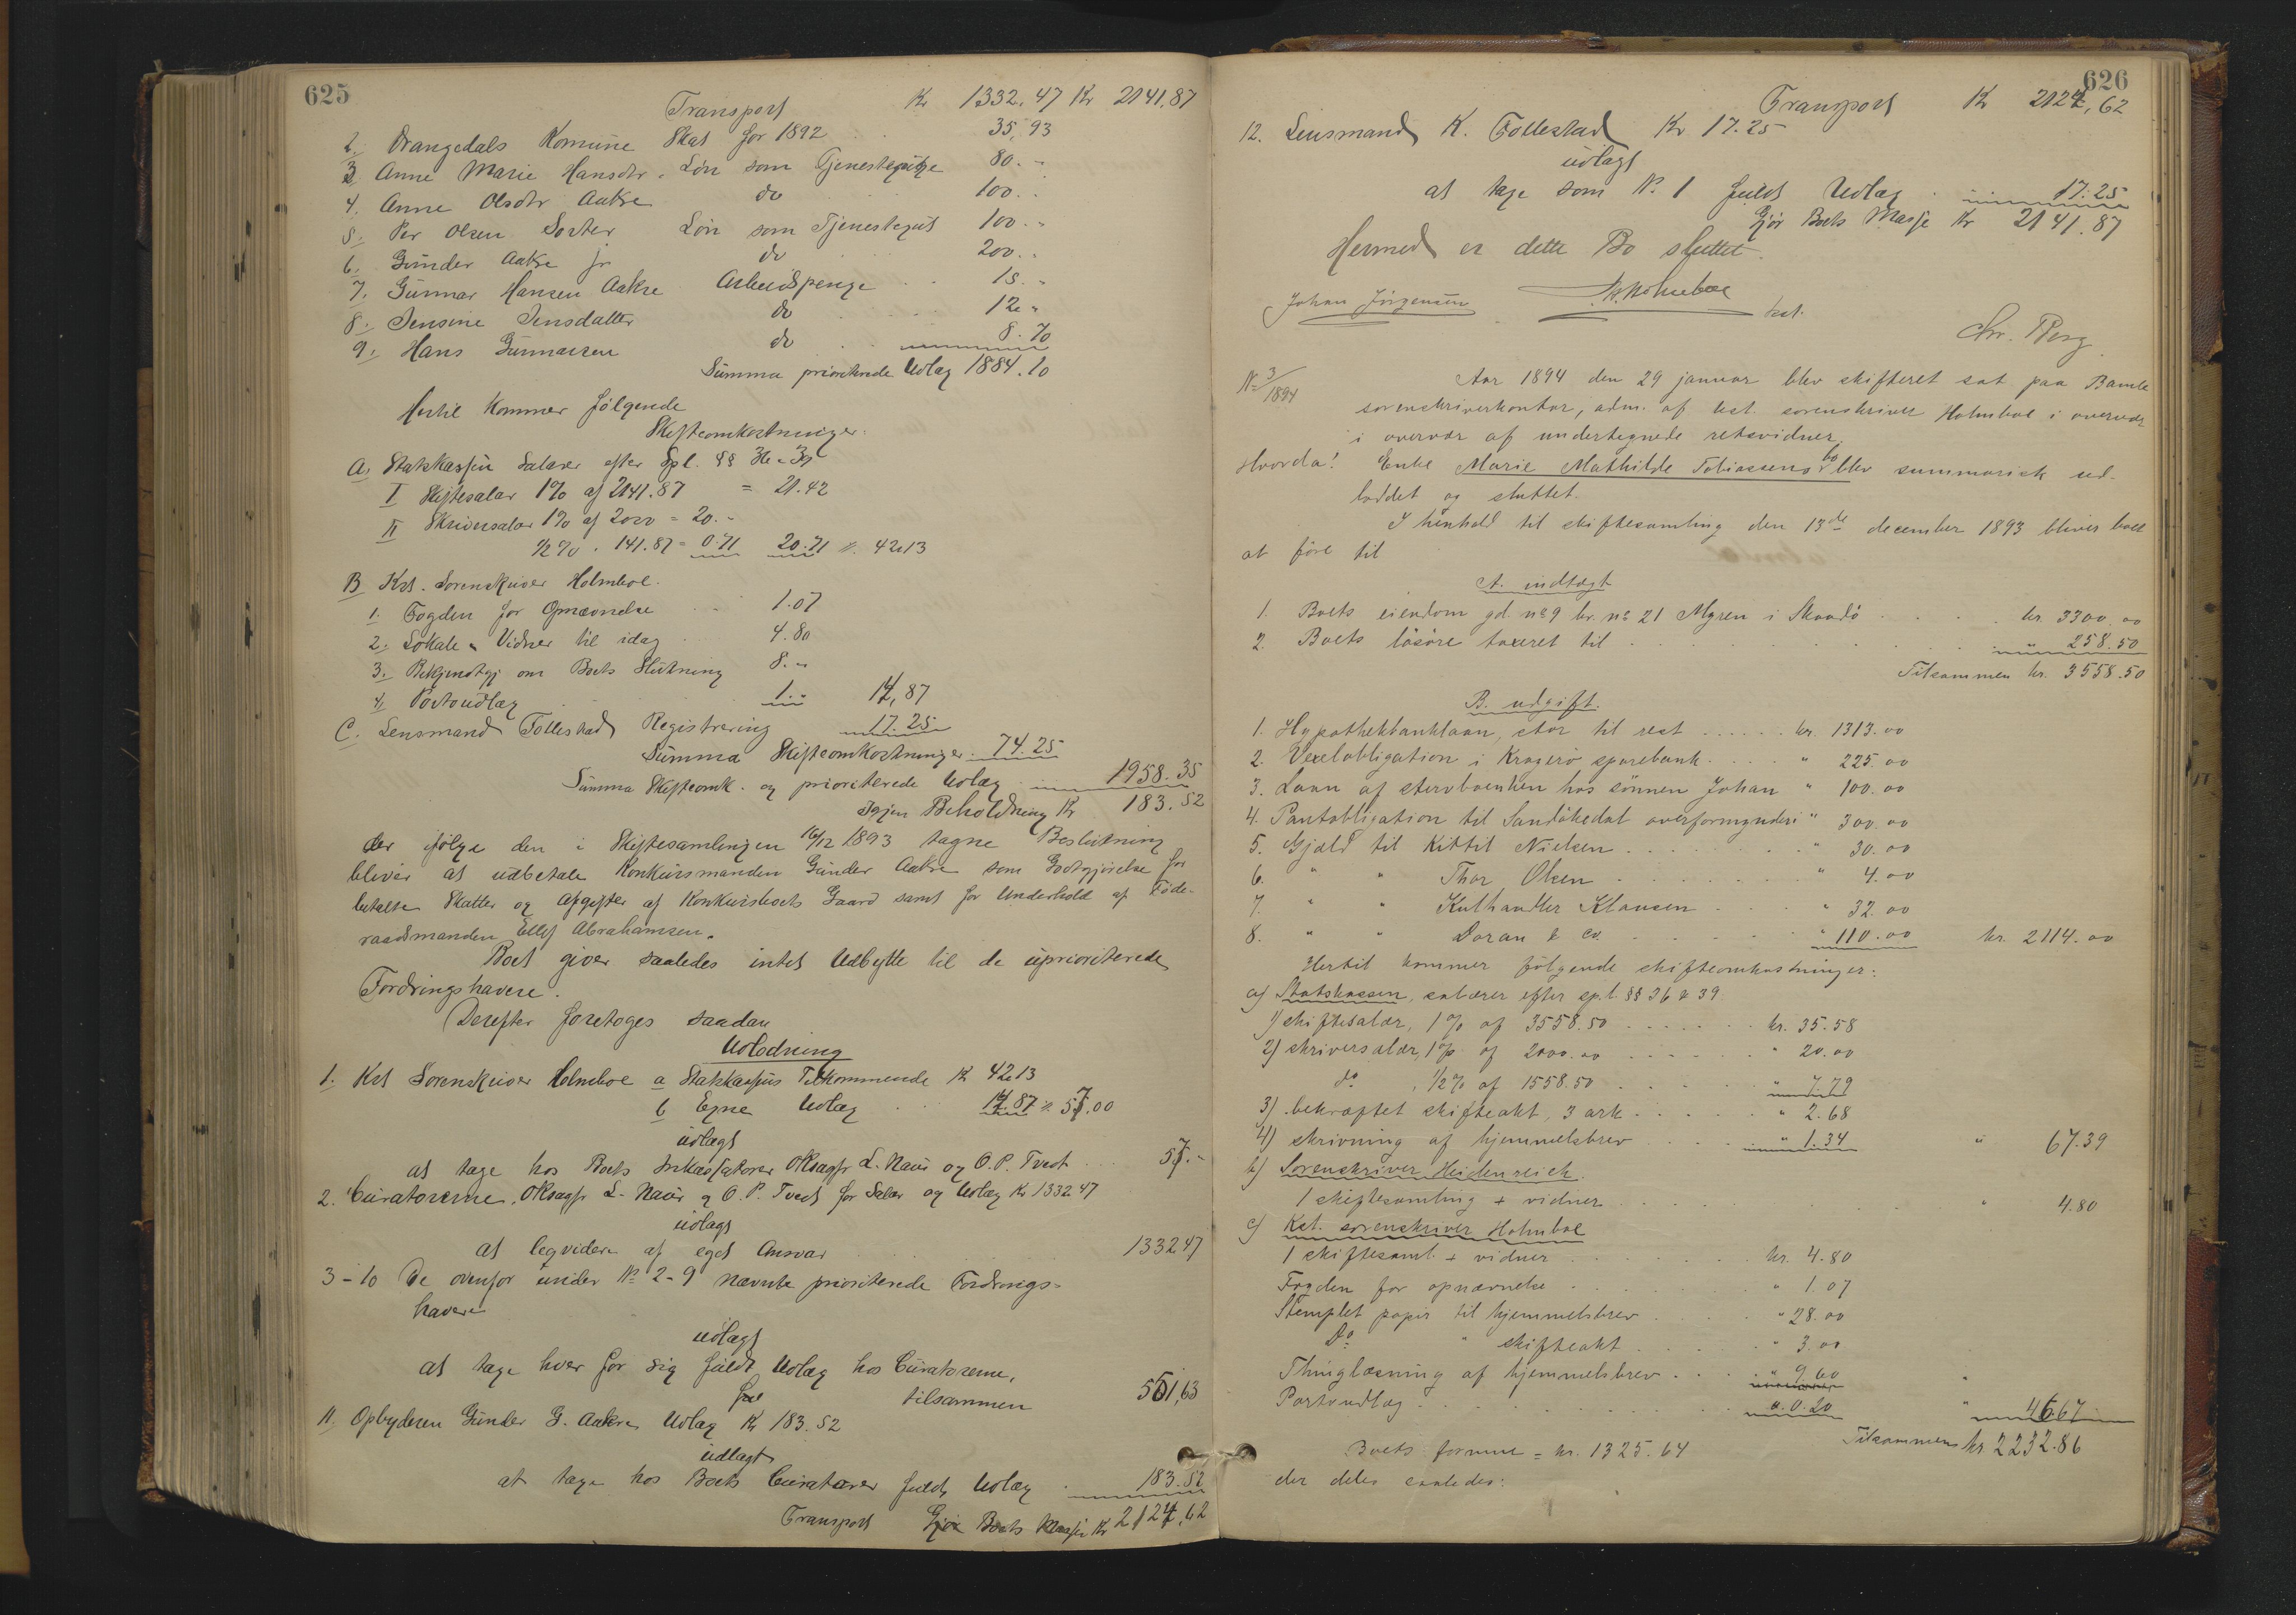 625
Transport Kr 1332,47 Kr 2141,87
2. Drangedals Komune Skat for 1892 35,93
3. Anne Marie Hansdtr. Løn som Tjenestepige 80.-
4. Anne Olsdtr Aakre do 100.-
5. Per Olsen Løn som Tjenestegut 100.-
6. Gunder Aakre jr do 200..
7. Gunnar Hansen Aakre Arbeidspenge 15.-
8. Jensine Jensdatter do 12.-
9. Hans Gunnarsen do 8.70
Summa prioriterede Udlæg 1884.10
Hertil kommer følgende
Skifteomkostninger.
A. Statskassen Salærer efter Spl. §§ 36 - 39
I Skiftesalær 1% af 2141.87 = 21.42
II Skriversalær 1% af 2000 = 20.-
1/2% . 141.87 = 0.71 20.71 42.13
B Kst. Sorenskriver Holmboe.
1. Fogden for Opnævnelse 1.07
2. Lokale & Vidner til idag 4.80
3. Bekjendtgj om Boets Slutning 8.-
4. Portoudlæg 1.- 14,87
C. Lensmand Tollestad Registrering 17.25
Summa Skifteomkostninger 74.25
Summa Skifteomk. og prioriterede Udlæg 1958.35
Igjen Beholdning Kr 183.52
der ifølge den i Skiftesamlingen 16/12 1893 tagne Beslutning
bliver at udbetale Konkursmanden Gunder Aakre som Godtgjørelse for
betalte Skatter og Afgifter af Konkursboets Gaard samt for Underhold af Føde-
raadsmanden Ellef Abrahamsen.
Boet giver saaledes intet Udbytte til de uprioriterede
Fordringshavere.
Derefter foretoges saadan
Udlodning
1. Kst Sorenskriver Holmboe a Statskassens Tilkommende Kr 42.13
b Egne Udlæg 14.87 57.00
udlagt
at tage hos Boets Inkassatorer Oksagfr L. Naur og O.P. Tvedt 57.-
2. Curatorerne, Oksagfr L. Naur og O.P. Tvedt for Salær og Udlæg Kr 1332.47
udlagt
at leqvidere af eget Ansvar 1332.47
3-10 De ovenfor under No 2-9 nævnte prioriterede Fordrings-
havere
udlagt
at tage hver for sig fuldt Udlæg hos Curatorerne,
tilsammen 551,63
11. Opbyderen Gunder G. Aakre Udlæg Kr 183.52
udlagt
at tage hos Boets Curatorer fuldt Udlæg 183.52
Transport Gjør Boets Masse Kr 2124,62
626
Transport Kr 2124,62
12. Lensmand K. Tollestad Kr 17.25
udlagt
at tage som No 1 fuldt Udlæg 17.25
Gjør Boets Masse Kr 2141.87
Hermed er dette Bo sluttet.
Johan Jørgensen Holmboe kst.
Chr. Berg
No 3/1894 Aar 1894 den 29 januar blev skifteret sat paa Bamle
sorenskriverkontor, adm. af kst. sorenskriver Holmboe i overvær
i overvær af undertegnede retsvidner.
Hvorda! Enke Marie Mathilde Tobiassens bo blev summarisk ud-
loddet og sluttet.
I henhold til skiftesamling den 13de december 1893 bliver boet
at føre til
A. indtægt
1. Boets eiendom gd. no 9 br. no 21 Myren i Skaadø kr. 3300.00
2. Boets løsøre taxeret til " 258.50
Tilsammen kr. 3558.50
B. udgift.
1. Hypothekbanklaan, stor til rest kr. 1313.00
2. Vexelobligation i Kragerø sparebank " 225.00
3. Laan af stervboenken hos sønnen Johan " 100.00
4. Pantobligation til Sandøkedal overformynderi " 300.00
5. Gjæld til Kittil Nielsen " 30.00
6. " " Thor Olsen " 4.00
7. " " Kulhandler Klausen " 32.00
8. " " Doran & Co. " 110.00 kr. 2114.00
Hertil kommer følgende skifteomkostninger:
a) Statskassen, salærer efter spl. §§ 36 & 39.
1) skiftesalær, 1% af 3558.50 kr. 35.58
2) skriversalær, 1% af 2000.00 " 20.00
do , 1/2% af 1558.50 " 7.79
3) bekræftet skifteakt, 3 ark " 2.68
4) skrivning af hjemmelsbrev " 1.34 " 67.39
b) Sorenskriver Heidenreich.
1 skiftesamling + vidner " 4.80
c) Kst. sorenskriver Holmboe
1 skiftesaml. + vidner kr. 4.80
Fogden for opnævnelse " 1.07
Stemplet papir til hjemmelsbrev " 28.00
Do " skifteakt " 3.00
Thinglæsning af hjemmelsbrev " 9.60
Portoudlæg " 0.20 " 46.67
Tilsammen kr 2232.86
Boets formue = kr. 1325.64
der deles saaledes: